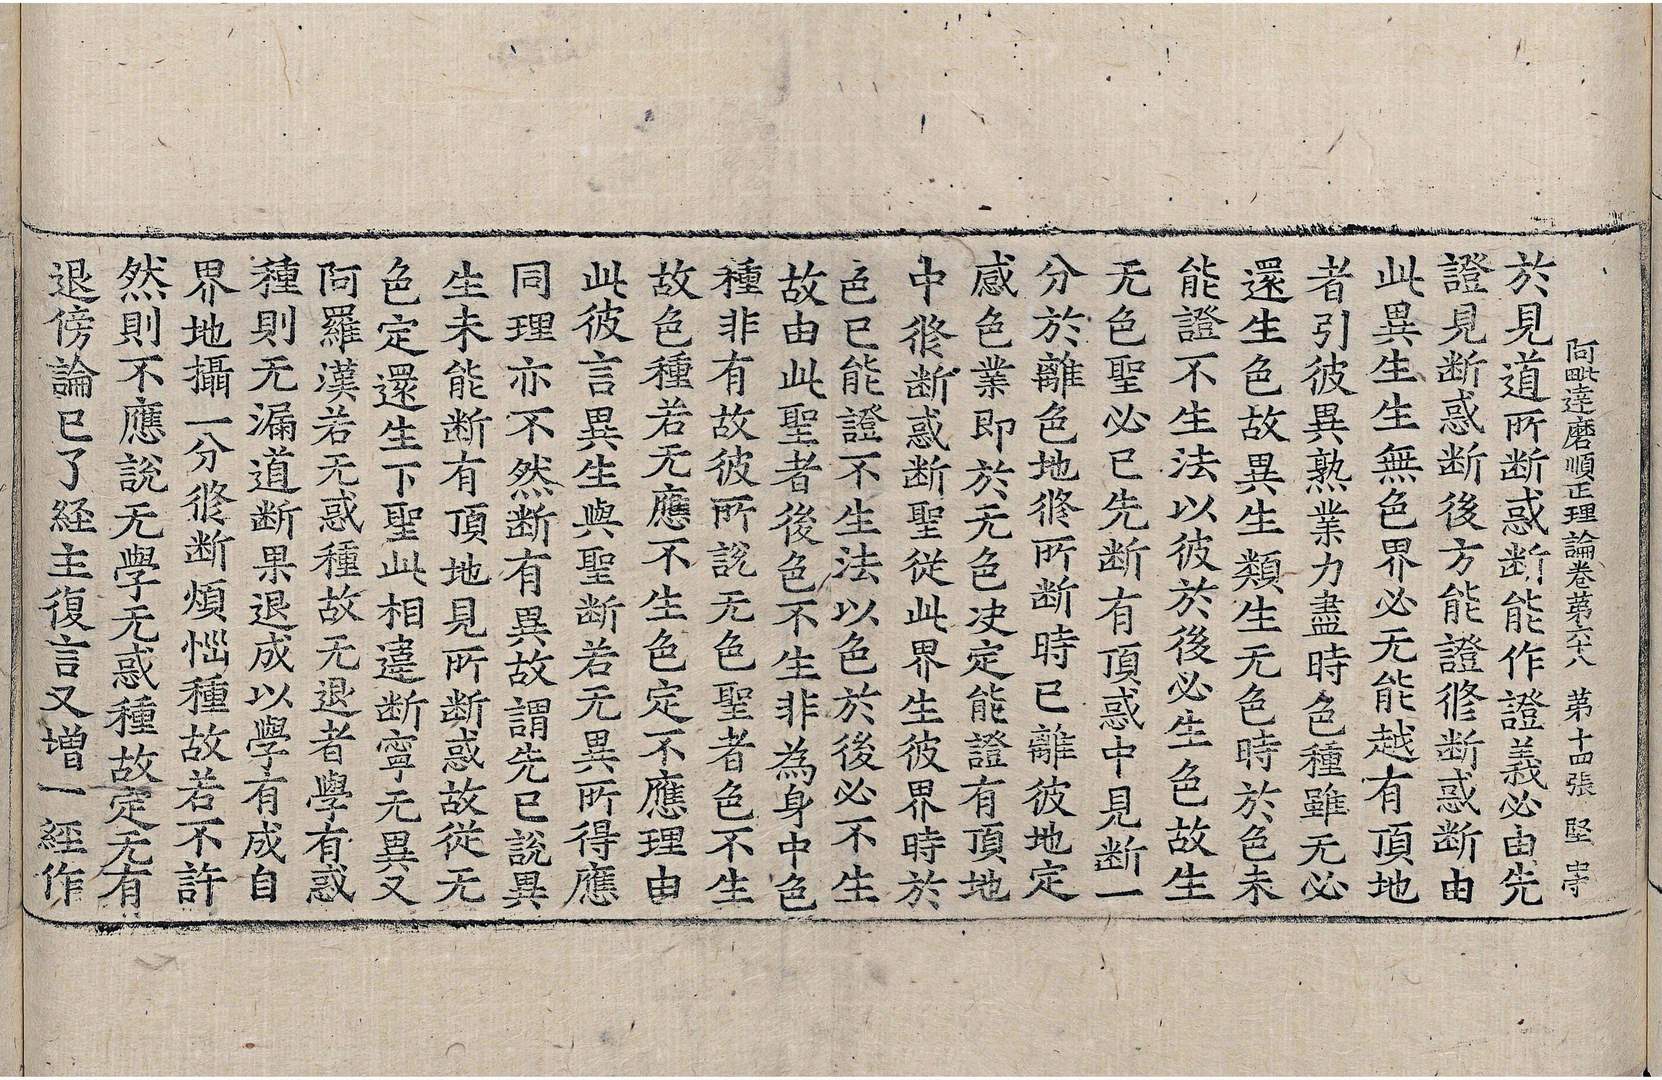 阿毗達磨順正理論卷第六十八 第十四張 堅
於見道所断惑断能作證義必由先
證見断惑断後方能證修断惑断由
此異生生無色界必无能越有頂地
者引彼異熟業力盡時色種雖无必
還生色故異生類生无色時於色未
能證不生法以彼於後必生色故生
无色聖必已先断有頂惑中見断一
分於離色地修所断時已離彼地定
感色業即於无色决定能證有頂地
中修断惑断聖從此界生彼界時於
色已能證不生法以色於後必不生
故由此聖者後色不生非為身中色
種非有故彼所説无色聖者色不生
故色種若无應不生色定不應理由
此彼言異生與聖断若无異所得應
同理亦不然断有異故謂先已說異
生未能断有頂地見所断惑故從无
色定還生下聖此相違断寧无異又
阿羅漢若无惑種故无退者學有惑
種則无漏道断果退成以學有成自
界地攝一分修断煩惱種故若不許
然則不應說无學无惑種故定无有
退傍論已了經主復言又增一經作